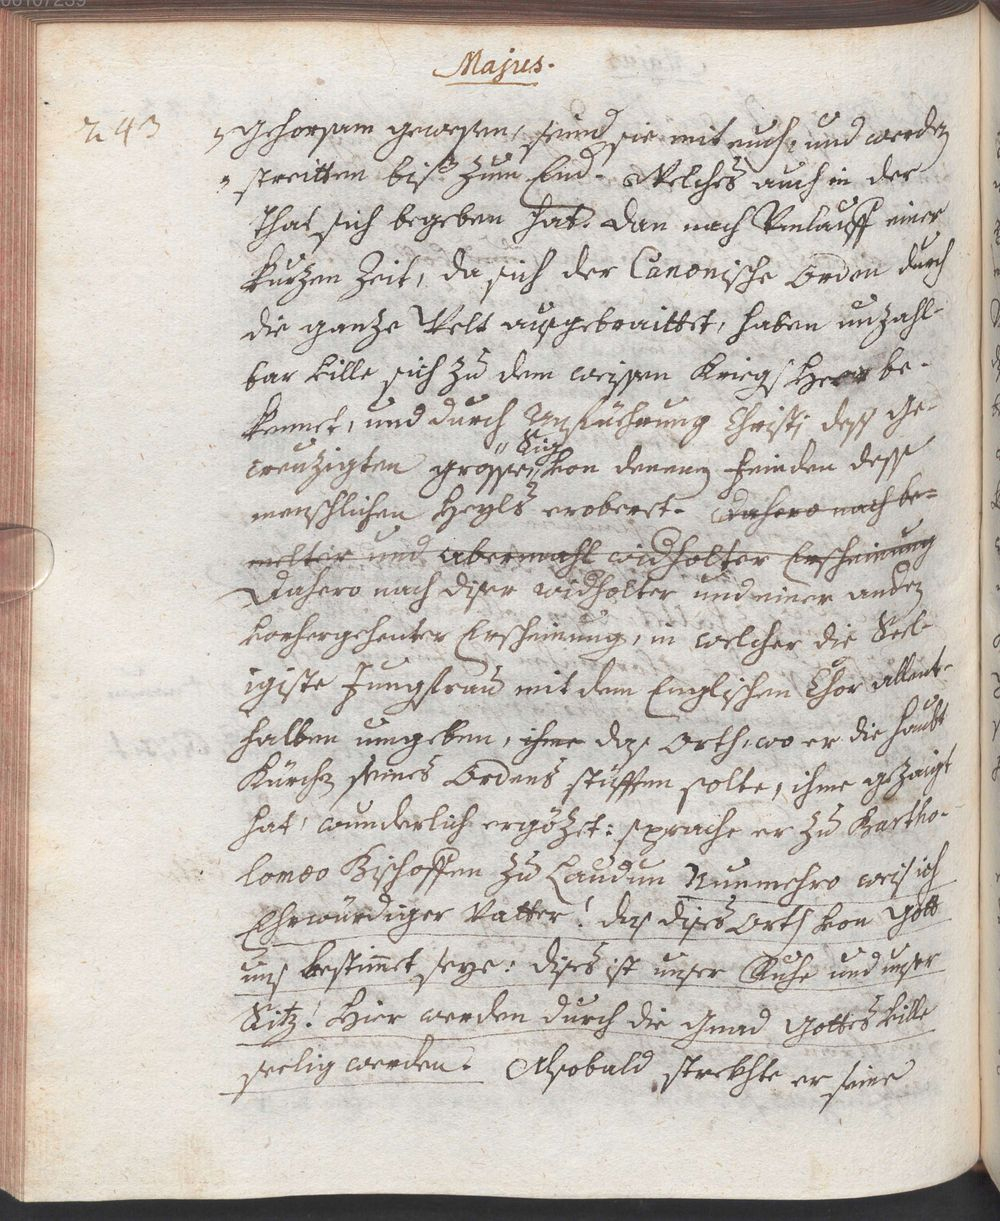 Majus.
243
„ gehorsam gewesen, seind sie mit euch, und werden
„ streitten biß zum End. Welches auch in der
That sich begeben hat. Dan nach Verlauff einer
kurtzen Zeit, da sich der Canonische Orden durch
die gantze Welt außgebraittet, haben unzahl-
bar ville sich zu dem weissen Kriegs Heer be-
kennet, und durch Anführung Christi dess ge-
creuzigten grosse Sig von denen feinden dess
menschlichen Heyls erobert. Dahero nach be-
melter und abermahl widholter Erscheinung
Dahero nach diser widholter und einer anden
vorhergehenter Erscheinung, in welcher die Seel-
igiste Jungfrau mit dem Englischen Chor allent-
halben umgeben, ihme das Orth, wo er die haubt
Kürchen seines Ordens stüfften solte, ihme gezaigt
hat, wunderlich ergötzet: sprache er zu Bartho-
lomeo Bischoffen zu Laudun Nunmehro weis ich
Ehrwürdiger Vatter! das dises Orth von Gott
uns bestimmet seye: dises ist unser Ruhe und unser
Sitz! Hier werden durch die Gnad Gottes ville
seelig werden. Alsobald strekhte er seine